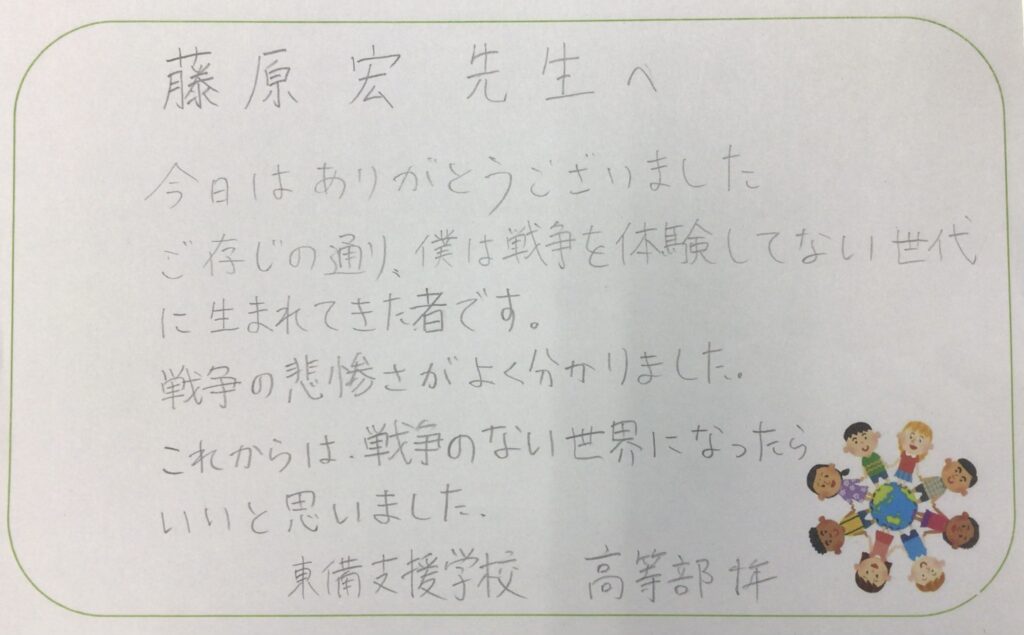 藤原宏先生へ
今日はありがとうございました
ご存じの通り、僕は戦争を体験してない世代
に生まれてきた者です。
戦争の悲惨さがよく分かりました.
これからは.戦争のない世界になったら
いいと思いました.
東備支援学校 高等部 年